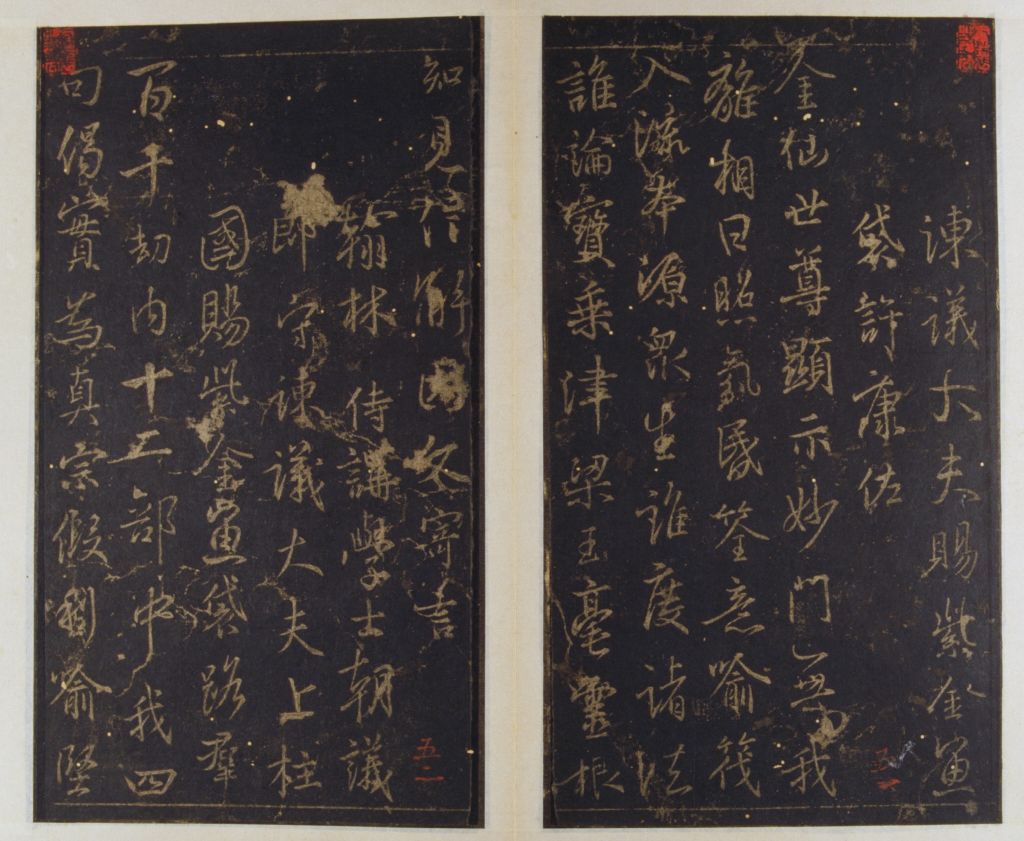 諫議大夫賜紫金魚
袋許康佐
金仙世尊顯示妙門無我
離相日照氣昏筌意喻筏
入流奉源眾生誰度諸法
誰論寶乘津梁玉毫靈根
知見信解因文寄言
翰林侍講學士朝議
郎守諫議大夫上柱
國賜紫金魚袋路群
百千劫內十二部中我四
句偈實為真宗假
喻堅
五二